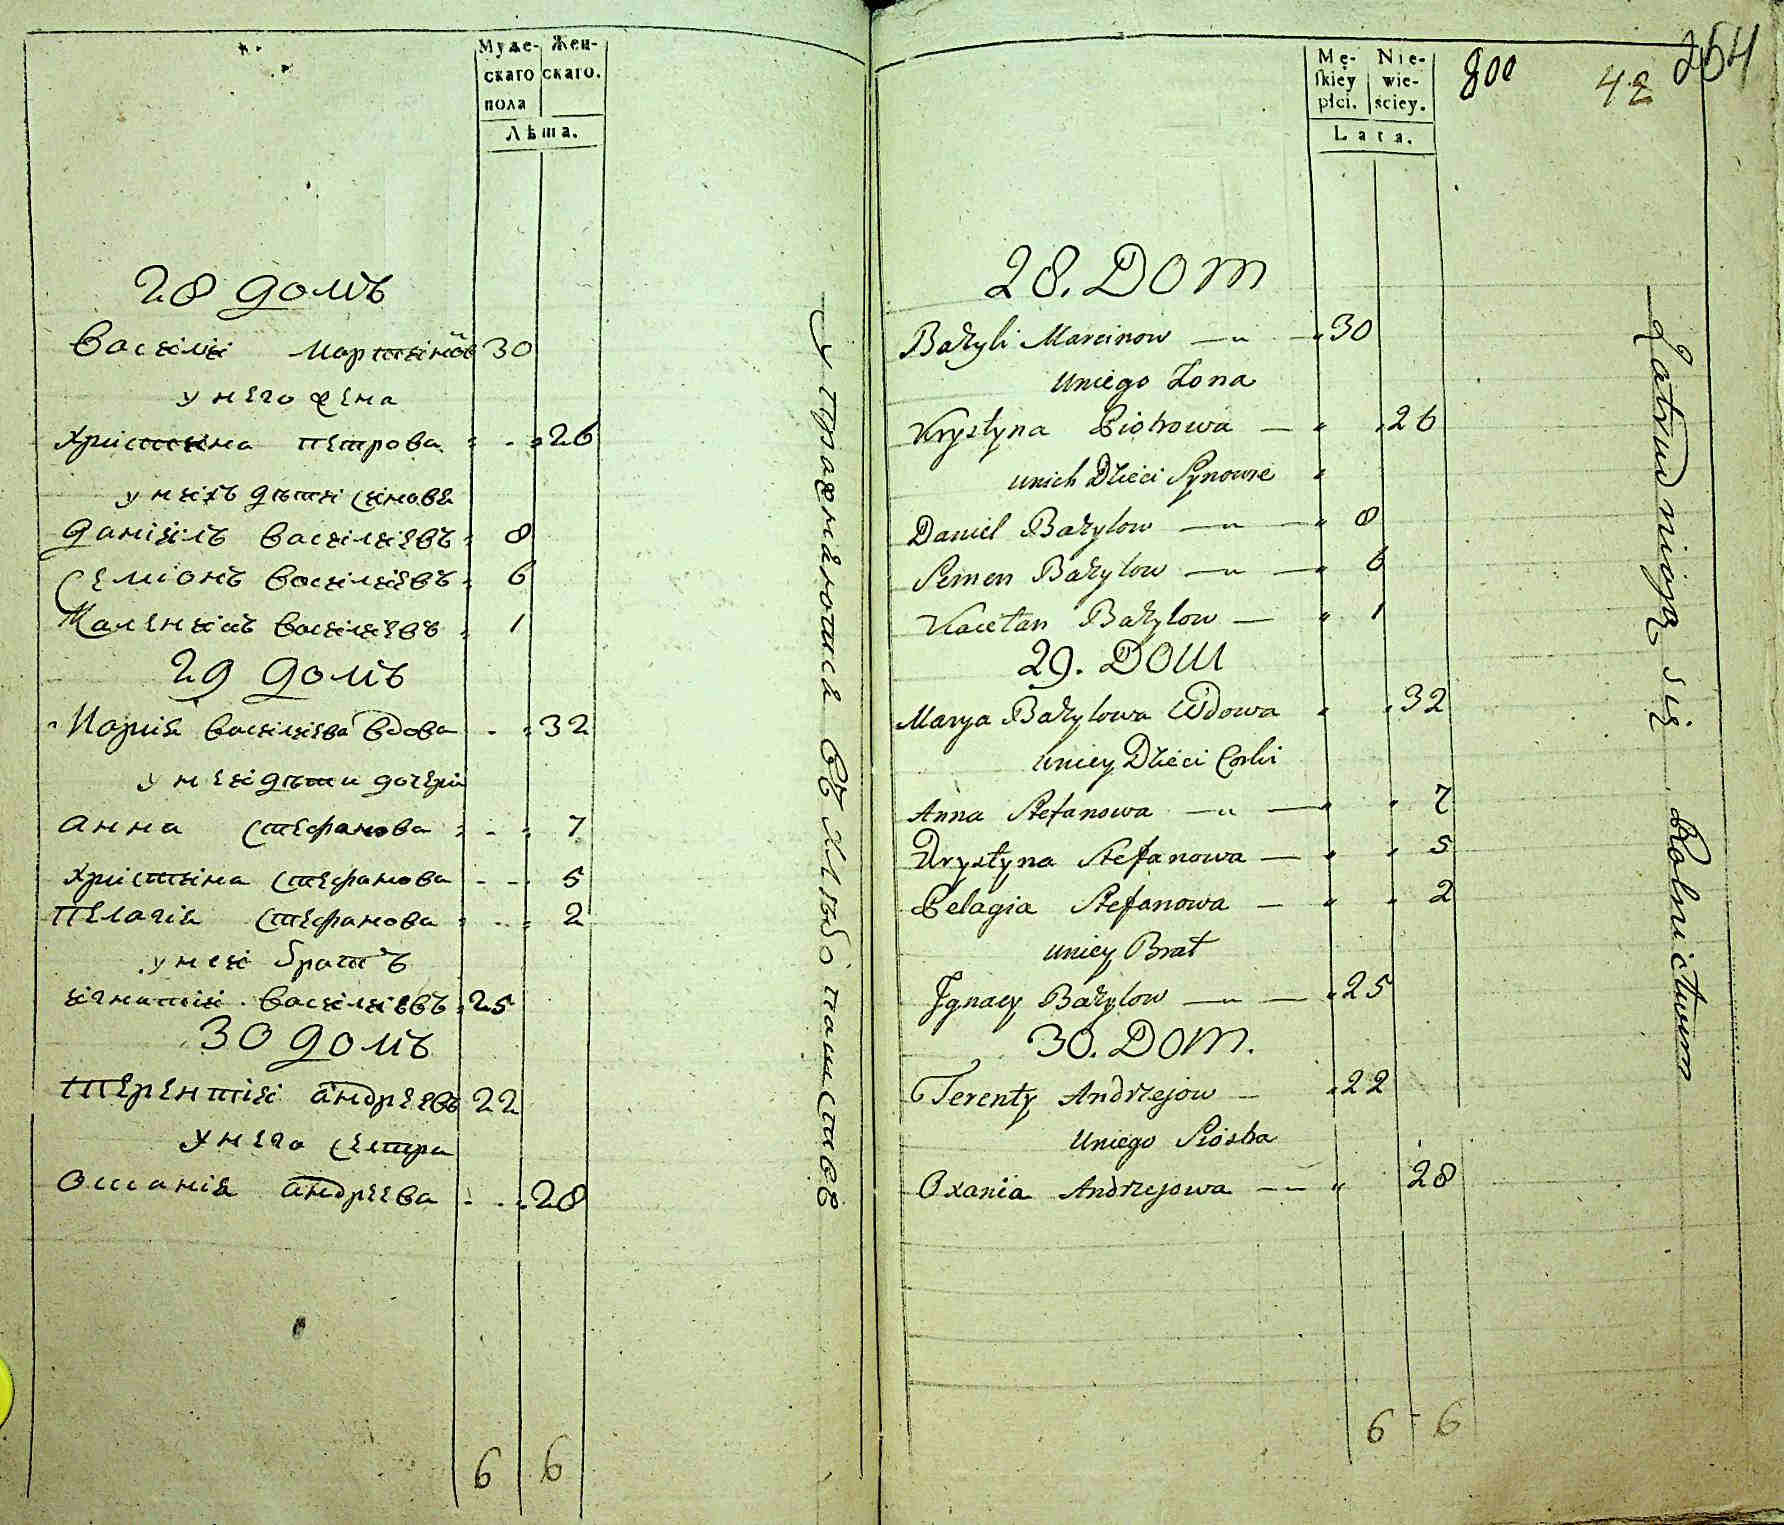 Муже- Жен-
скаго скаго.
пола
Лѣта.
28 домъ
Василій Мартиновъ 30
у него жена
Христина петрова 26
у нихъ дѣти синове
Даніилъ Василіевъ 8
Семіонъ Василіевъ 6
Василіевъ 1
29 домъ
Марія Василіева вдова 32
у неи дѣти дочери
Анна Стефанова 7
Христина Стефанова 5
Пелагія Стефанова 2
у неи братъ
игнатій Василіевъ 25
30 домъ
Терентіи андреевъ 22
У него сестра
андреева 28
6 6
упражняются въ хлѣбопашествѣ
Mę- Nie-
skiey wie-
płci. ściey.
Lata.
800 42 254
28. Dom
Bazyli Marcinow 30
uniego Żona
Krystyna Piotrowa 26
unich Dzieci Synowie
Daniel Bazylow 8
Semen Bazylow 6
Kaietan Bazylow 1
29. Dom
Marya Bazylowa Wdowa 32
uniey Dzieci Corki
Anna Stefanowa 7
Krystyna Stefanowa 5
Pelagia Stefanowa 2
uniey Brat
Ignacy Bazylow 25
30. Dom.
Terenty Andrzejow 22
Uniego Siostra
Oxania Andrzejowa 28
6 - 6
Zatrudniają się Rolnictwem